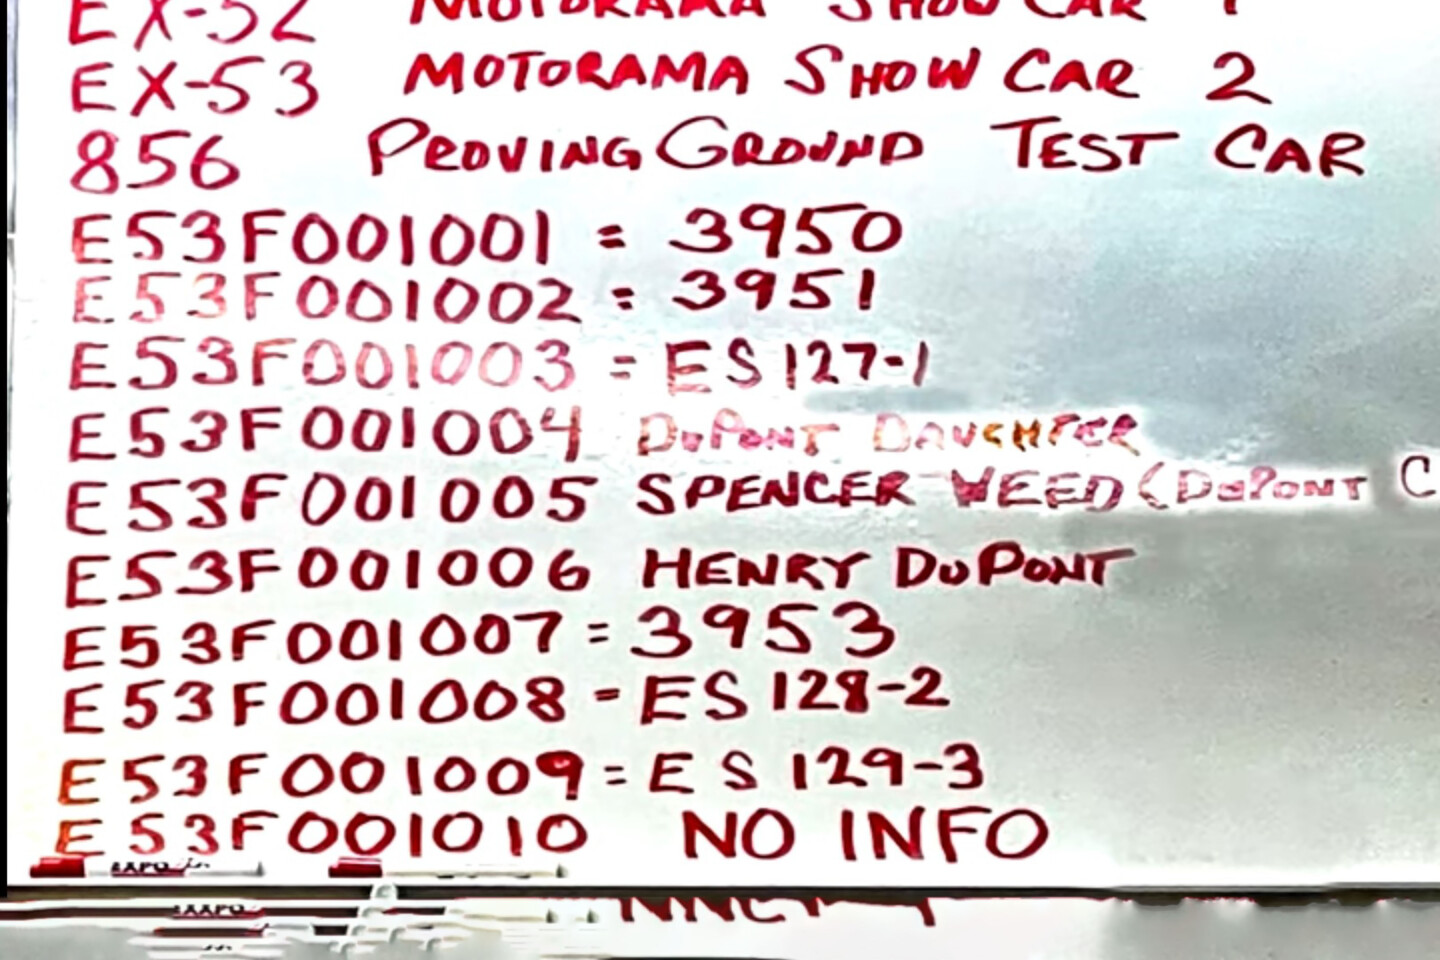 EX-52 MOTORAMA SHOW CAR 1
EX-53 MOTORAMA SHOW CAR 2
856 PROVING GROUND TEST CAR
E53F001001 = 3950
E53F001002 = 3951
E53F001003 = ES 127-1
E53F001004 DUPONT DAUGHTER
E53F001005 SPENCER WEED (DUPONT C
E53F001006 HENRY DUPONT
E53F001007 = 3953
E53F001008 = ES 128-2
E53F001009 = ES 129-3
E53F001010 NO INFO
EXPO